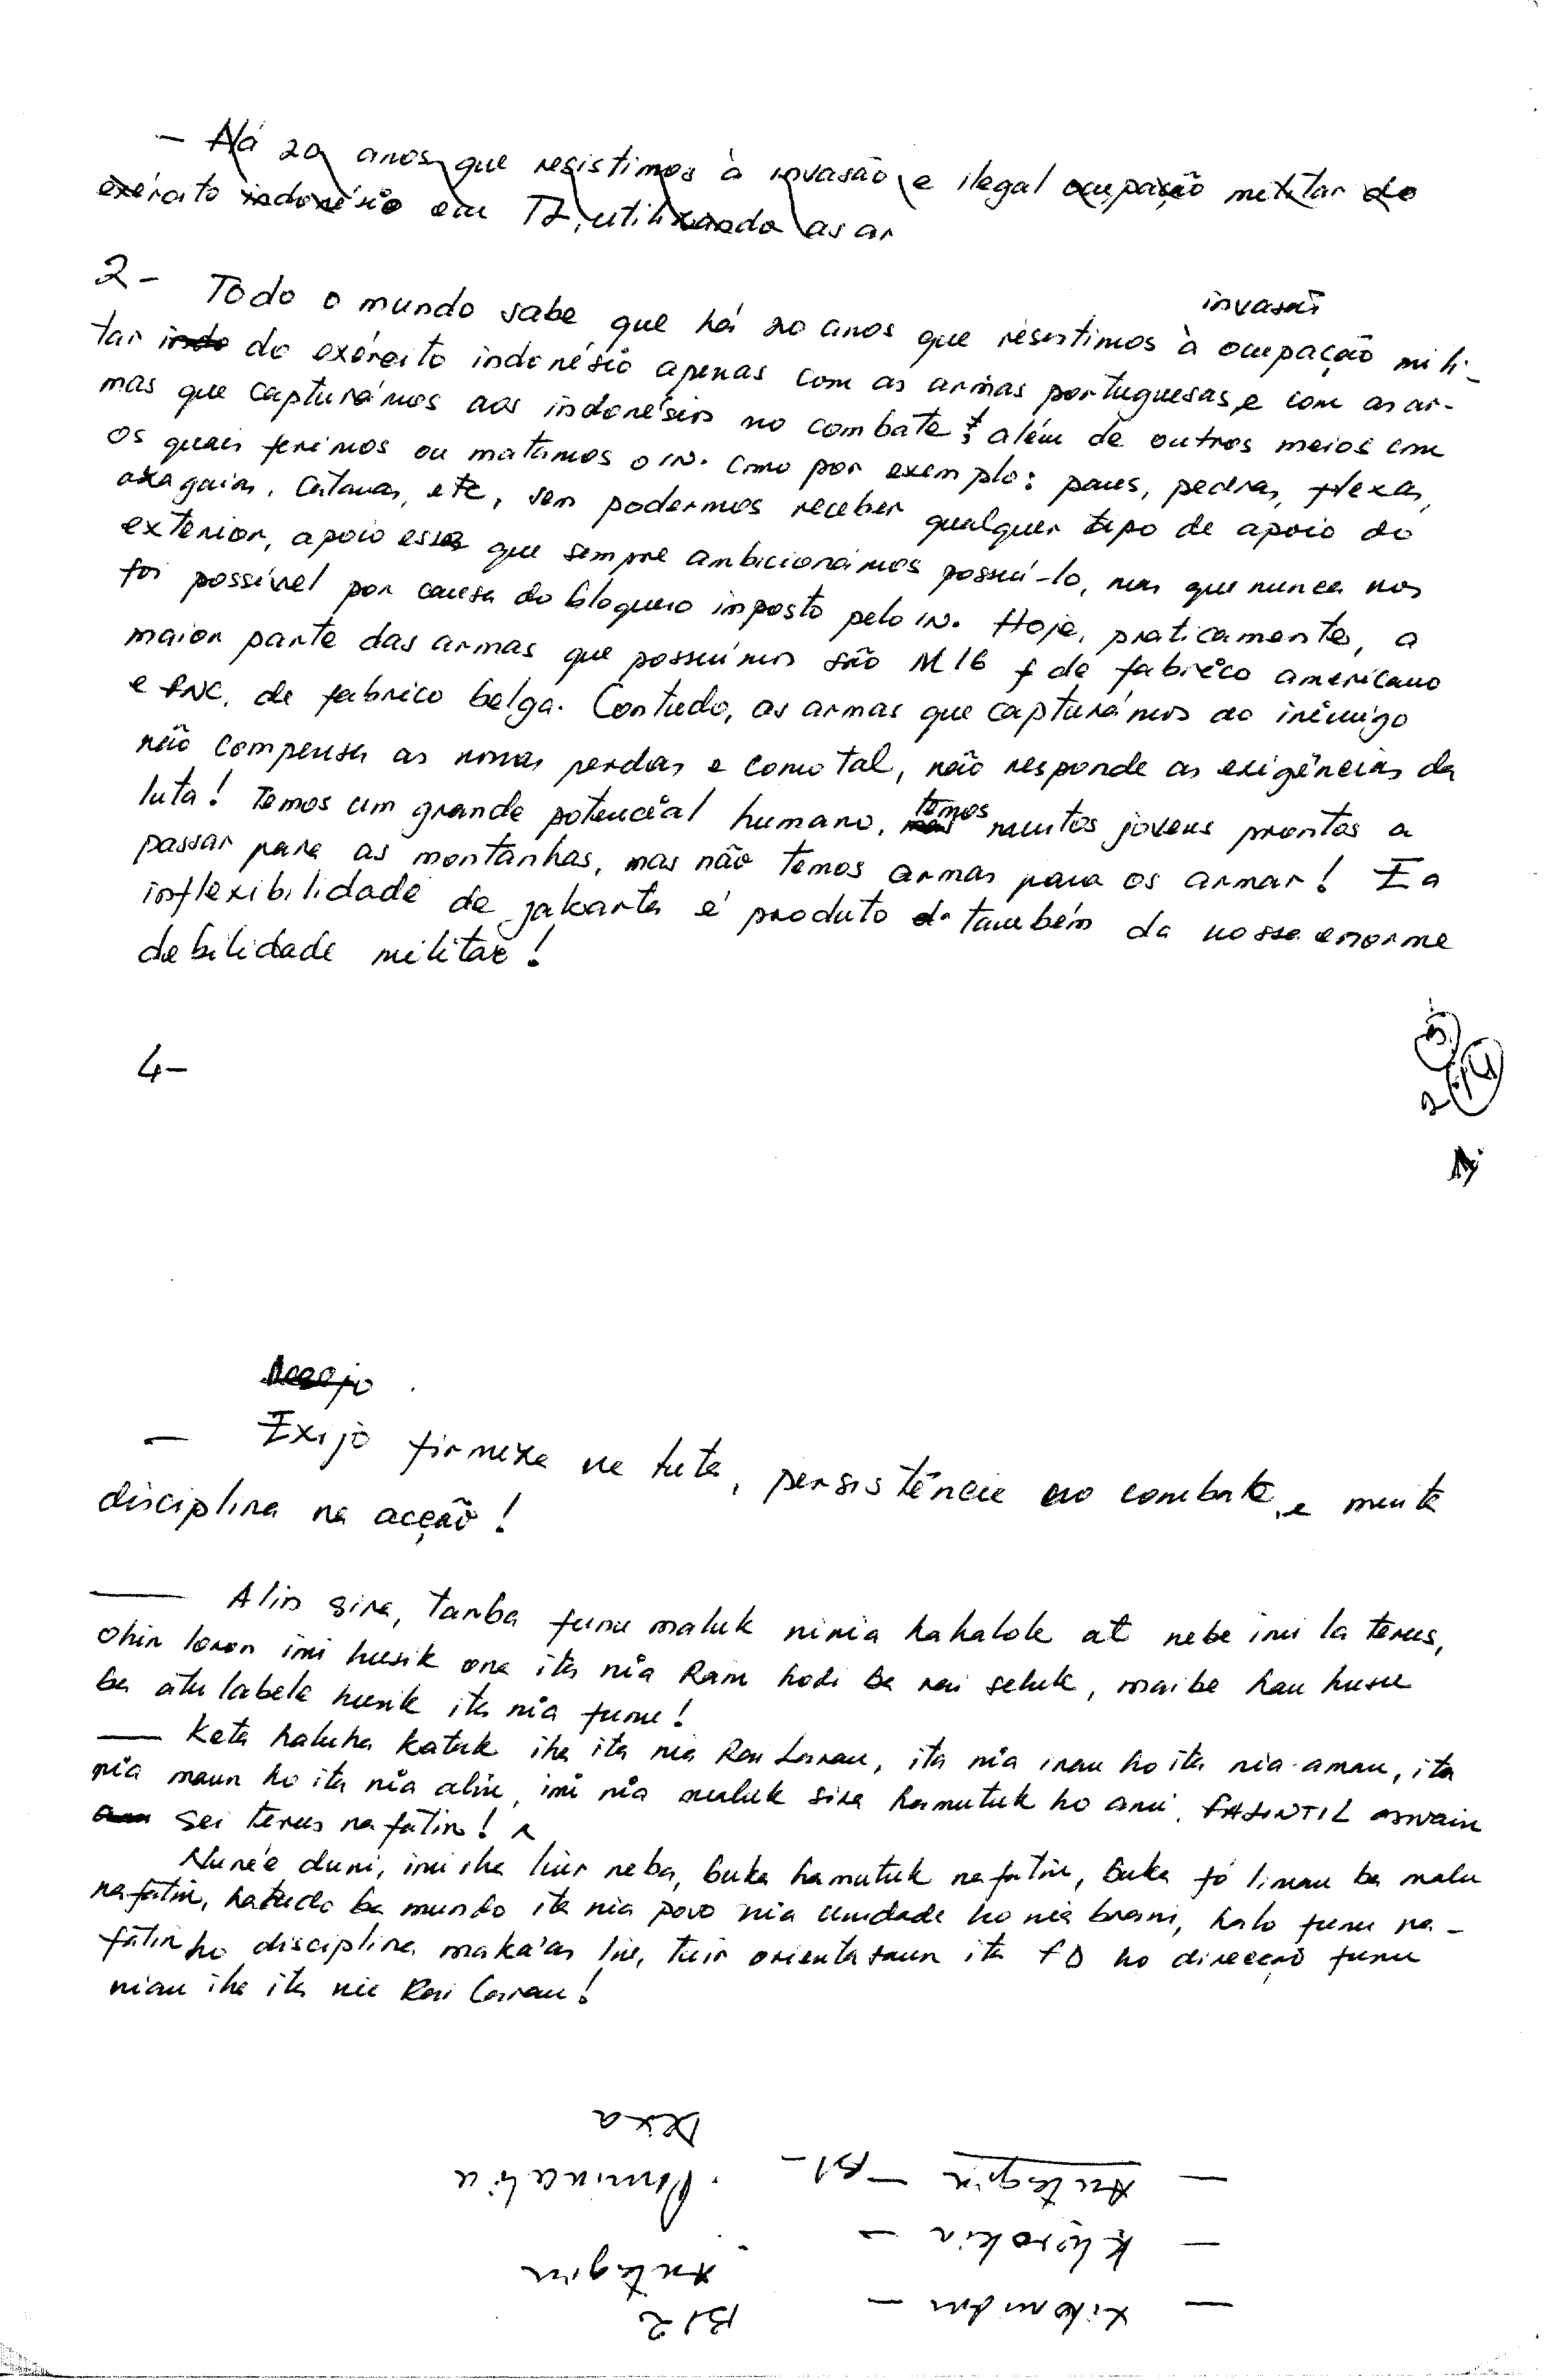 - Há 20 anos que resistimos à invasão e ilegal ocupação militar do
exército indonésio em TL, utilizando as ar
2- Todo o mundo sabe que há 20 anos que resistimos à ocupação mili-
invasão
tar indo do exército indonésio apenas com as armas portuguesas e com as ar-
mas que capturámos aos indonésios no combate, além de outros meios com
os quais ferimos ou matamos o IN. como por exemplo: paus, pedras, flexas,
azagaias, catanas, etc, sem podermos receber qualquer tipo de apoio do
exterior, apoio esse que sempre ambicionámos possuí-lo, mas que nunca nos
foi possível por causa do bloqueio imposto pelo IN. Hoje, praticamente, a
maior parte das armas que possuímos são M16 de fabrico americano
e FNC, de fabrico belga. Contudo, as armas que capturámos ao inimigo
não compensa as nossas perdas e como tal, não responde as exigências da
luta! Temos um grande potencial humano, temos muitos jovens prontos a
passar para as montanhas, mas não temos armas para os armar! E a
inflexibilidade de jakarta é produto também da nossa enorme
debilidade militar!
4-
- Exijo firmeza na luta, persistência no combate, e muita
disciplina na acção!
— Alin sira, tanba funu maluk ninia hahalok at nebe imi la terus,
ohin loron imi husik ona ita nia Rain hodi ba rai seluk, maibe hau husu
ba atu labele husik ita nia funu!
— Keta haluha katak iha ita nia Rai Laran, ita nia inan ho ita nia aman, ita
nia maun ho ita nia alin, imi nia maluk sira hamutuk ho ami, FALINTIL aswain
sei terus nafatin!
Nune'e duni, imi iha liur neba, buka hamutuk nafatin, buka fó liman ba malu
nafatin, hatudo ba mundo ita nia povo nia unidade ho nia brani, halo funu na-
fatin ho disciplina maka'as liu, tuir orientasaun ita FD ho direcção funu
nian iha ita nia Rai Laran!